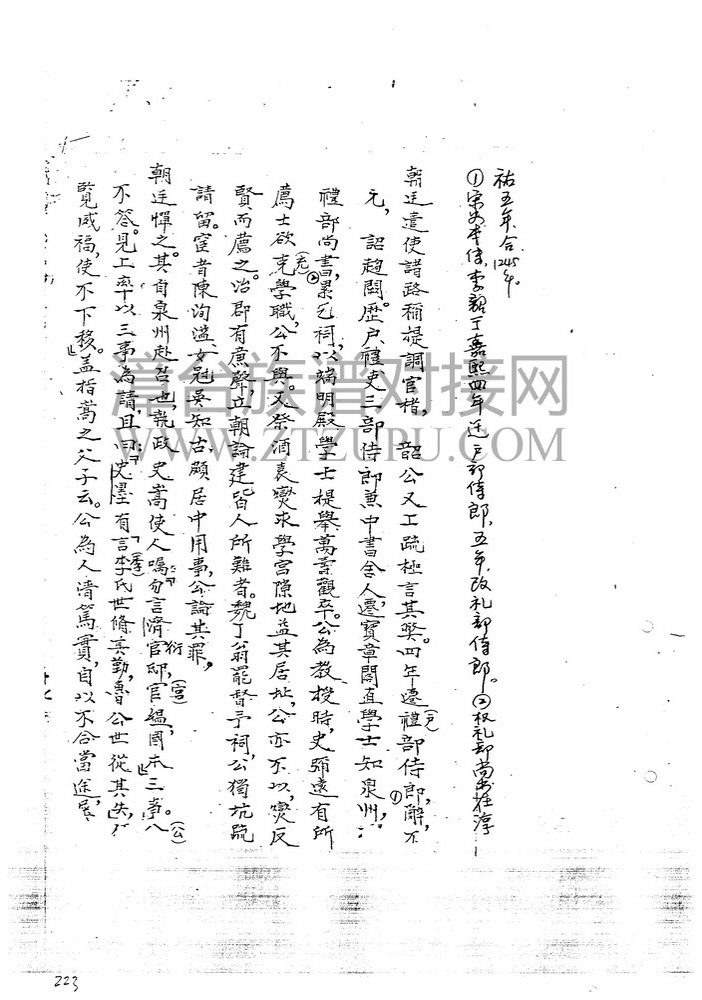 祐五年合1245年。
①宋史本传,李韶丁嘉熙四年迁户部侍郎,五年改礼部侍郎。②权礼部尚书在淳
朝廷遣使諸路稱提調官楮, 韶公又工疏極言其弊。四年遷禮(户)部侍郎①,辭,不
允,詔趨闕。歷户禮吏三部侍郎兼中書舍人,遷寶章閣直學士知泉州,
禮部尚書②,累乞祠,以端明殿學士提舉萬壽觀卒。公為教授時,史彌遠有所
薦士欲充(充)學職,公不與。又祭酒袁燮求學宮隙地益其居址,公亦不以,燮反
賢而薦之。治郡有廉聲,立朝論建皆人所難者。魏了翁罷督予祠,公獨抗疏
請留。宦者陳洵溢,女冠吳知古,顧居中用事,公論其罪,
朝廷憚之。其自泉州赴召也,執政史嵩使人囑勿言濟官(宮)邸,官媪,國本三事。公(公)
不答。見上率以三事為請,且曰史墨有言李(季)氏世脩其勤,魯公世從其失,
覽威福,使不下移。盖指嵩之父子云。公為人清篤實,自以不合當途,屢
道合族谱对接网
WWW.ZTZUPU.COM
223